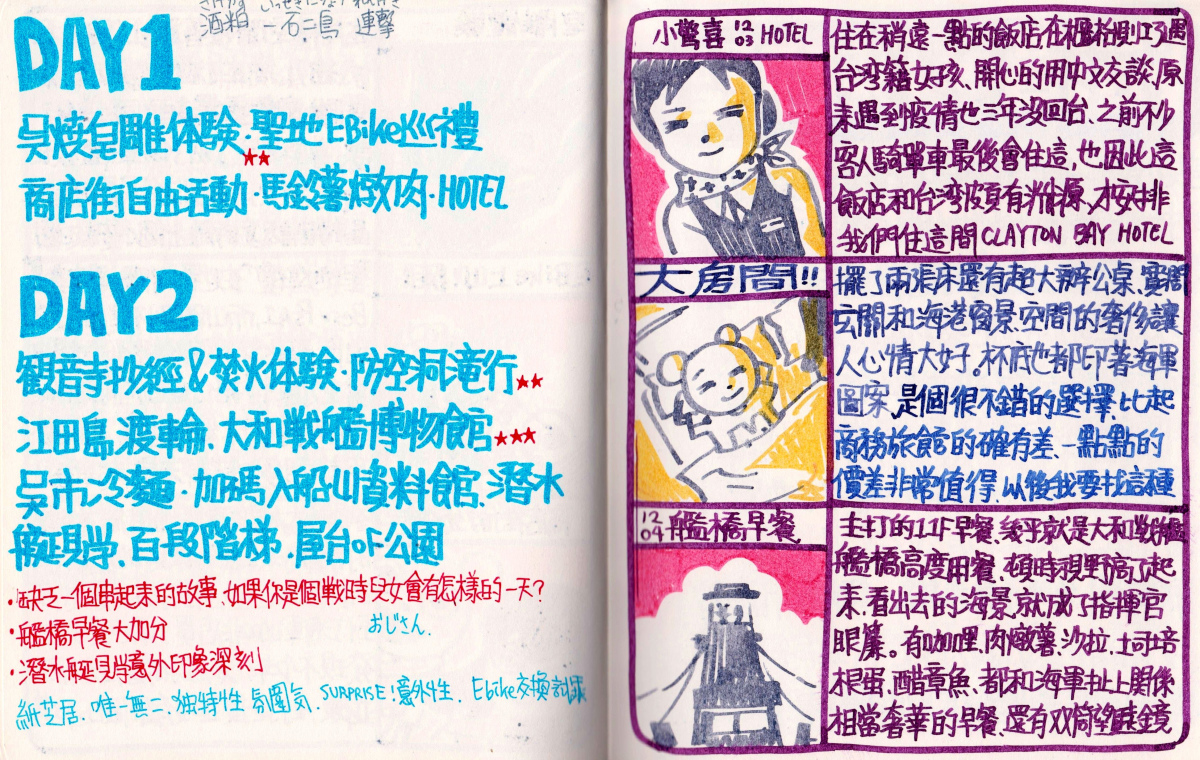 さけかす いっせきにちょう
酒粕 一石二鳥 連撃
DAY1
呉焼皇雕体験・聖地EBike巡禮
★★
商店街自由活動・馬鈴薯燉肉・HOTEL
DAY2
観音寺抄經&焚火体験・防空洞滝行★★
江田島渡輪、大和戦艦博物館★★★
吳市冷麵・加碼入船山資料館、潛水
艇見学、百段階梯、屋台OF公園
・缺乏一個串起來的故事、如果你是個戰時兒女會有怎樣的一天?
・艦橋早餐大加分
おじさん.
・潛水艇見学意外印象深刻
紙芝居、唯一無二、独特性 氛圍気、SURPRISE!意外性、Ebike交換記録
小驚喜 12/03 HOTEL
住在稍遠一點的飯店在櫃檯則巧遇
台湾籍女孩、開心的用中文友談,原
來遇到疫情也三年沒回台、之前不少
客人騎單車最後會住這,也因此這
飯店和台湾頗有淵源,才安排
我們住這間CLAYTON BAY HOTEL
大房間!!
擺了兩張床還有超大辦公桌、實間
玄關和海港窗景、空間的奢侈讓
人心情大好。杯底他都印著海軍
圖案,是個很不錯的選擇,比起
商務旅館的確有差、一點點的
價差非常值得,以後我要找這種
12/04 艦橋早餐
主打的11F早餐、幾乎就是大和戰艦
艦橋高度用餐、頓時視野高了起
來、看出去的海景、就成了指揮官
眼簾。有咖哩、肉燉薯、沙拉、土司培
根蛋、醋章魚、都和海軍扯上關係
相當奢華的早餐,還有双筒望遠鏡